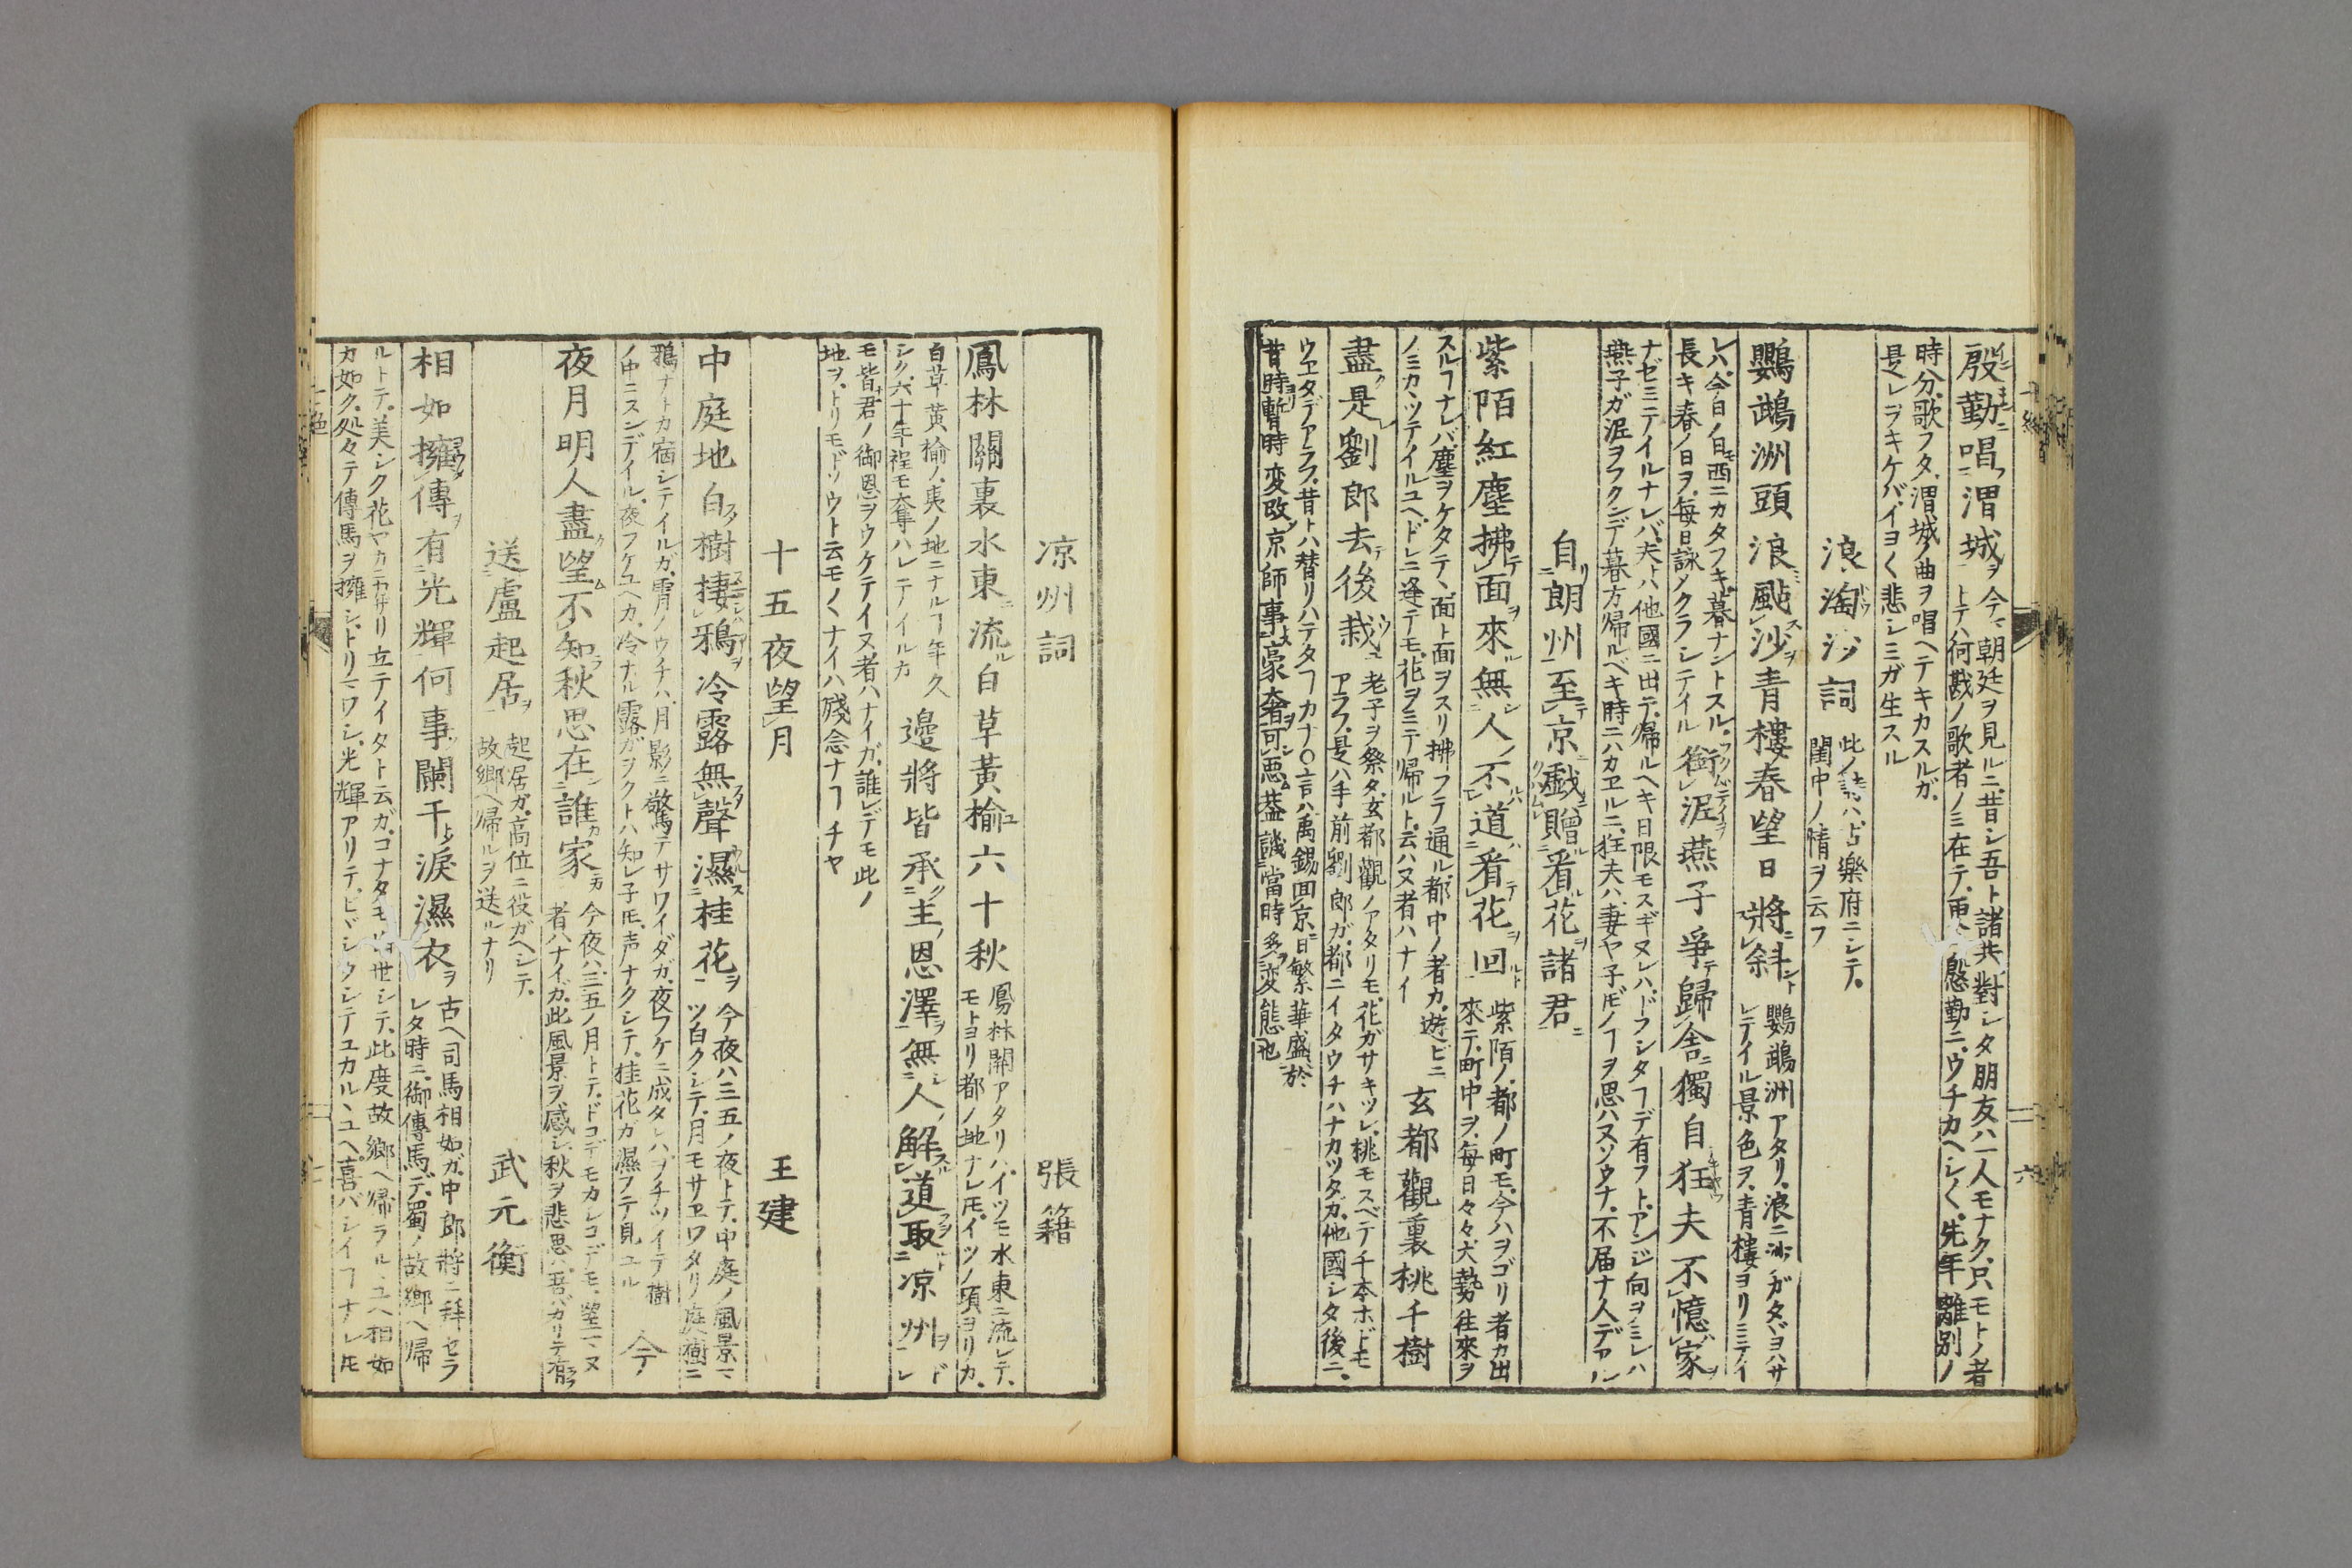 殷勤唱渭城 今マ朝廷ヲ見ルニ、昔シ吾ト諸共ニ對シタ朋友ハ一人モナク、只モトノ者
トテハ何戡ノ歌者ノミ在テ、更ニ慇勤ニ、ウチカヘシ〱、先年離別ノ
時分、歌フタ、渭城ノ曲ヲ唱ヘテキカスルガ、
是レヲキケバ、イヨ〱悲シミガ生スル
浪淘沙詞 此ノ詩ハ、古樂府ニシテ、
閨中ノ情ヲ云フ
鸚鵡洲頭浪颭沙青樓春望日將斜 鸚鵡洲アタリ、浪ニ沙ガタヾヨハサ
レテイル景色ヲ、青樓ヨリミテイ
レハ、今日ノ日モ西ニカタフキ、暮ナントスル、
長キ春ノ日ヲ、毎日詠メクラシテイル
銜泥燕子爭歸舎獨自狂夫不憶家
ナゼミテイルナレバ、夫トハ他國ニ出テ、帰ルヘキ日限モスギヌレハ、ドフシタフデ有フト、アンジ向ヲミレハ
燕子ガ泥ヲフクンデ暮方帰ルベキ時ニハカエルニ、狂夫ハ、妻ヤ子ドモノヿヲ思ハヌソウナ、不届ナ人デアル
自朗州至京戯贈看花諸君
紫陌紅塵拂面來無人不道看花回 紫陌ノ都ノ町モ、今ハヲゴリ者カ出
來テ、町中ヲ、毎日々々、大勢往來ヲ
スルヿナレバ、塵ヲケタテ、面ト面ヲスリ拂フテ通ル、都中ノ者カ、遊ビニ
ノミカヽツテイルユヘ、ドレニ逢テモ、花ヲミテ帰ルト、云ハヌ者ハナイ
玄都觀裏桃千樹
盡是劉郎去後栽 老子ヲ祭タ、玄都觀ノアタリモ、花ガサキツレ、桃モスベテ千本ホドモ
アラフ、是ハ手前劉郎ガ、都ニイタウチハナカツタガ、他國シタ後ニ、
ウヱタデアラフ、昔トハ替リハテタヿカナ○言ハ禹錫回京日繁華盛於
昔時暫時変改京師事豪奢可悪葢譏當時多変態也
凉州詞 張籍
鳳林關裏水東流白草黃榆六十秋 鳳林關アタリハ、イツモ水東ニ流レテ、
モトヨリ都ノ地ナレ𪜈、イツノ頃ヨリカ、
白草黃榆ノ、夷ノ地ニナルヿ年久
シク、六十年程モ奪ハレテノイルカ
邊將皆承主恩澤無人解道取凉州
モ皆君ノ御恩ヲウケテイヌ者ハナイガ、誰レデモ此ノ
地ヲ、トリモドソウト云モノ〱ナイハ殘念ナヿチヤ
十五夜望月 王建
中庭地白樹棲鴉冷露無聲濕桂花 今夜ハ三五ノ夜トテ、中庭ノ風景
一ツ白クシテ、月モサヱワタリ庭樹ニ
鴉ナトカ宿シテイルガ、宵ノウチハ、月影ニ驚テサワイダガ、夜フケニ成タレハ、ヲチツイテ樹
ノ中ニスンデイル、夜フケユヘカ、冷ナル露ガヲクトハ知レ子𪜈、声ナクシテ、桂花ガ濕フテ見ユル
今
夜月明人盡望不知秋思在誰家 今夜ハ、三五ノ月トテ、ドコデモカレコデモ、望マヌ
者ハナイガ、此風景ヲ感シ、秋ヲ悲思ハ、吾バガリテ有フ
送盧起居 起居ガ、高位ニ役ガヘシテ、
故鄉ヘ帰ルヲ送ルナリ
武元衡
相如擁傳有光輝何事闌干淚濕衣 古ヘ司馬相如ガ、中郎將ニ拜セラ
レタ時ニ、御傳馬デ、蜀ノ故鄉ヘ帰
ルトテ、美シク花ヤカニカサリ立テイタト云ガ、コナタモ出世シテ、此度故鄉ヘ帰ラルヽユヘ相如
カ如ク、処々テ傳馬ヲ擁シ、トリマワシ、光輝アリテ、ビヾシウシテユカルヽユヘ、喜バシイヿナレ𪜈